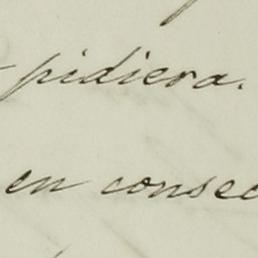 pidiera.
en consec